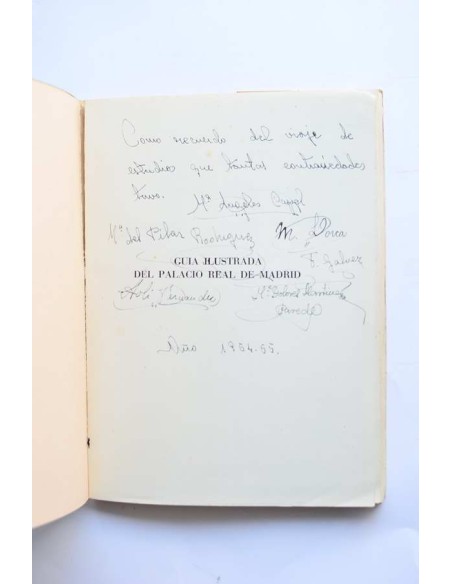 Como recuerdo del viaje de
estudios que tantas contrariedades
tuvo. Mª Angeles
Mª del Pilar Rodriguez M. Dorca
GUIA ILUSTRADA
DEL PALACIO REAL DE MADRID
F. Galvez
Hernandez Mª Dolores Martinez
Año 1954-55.